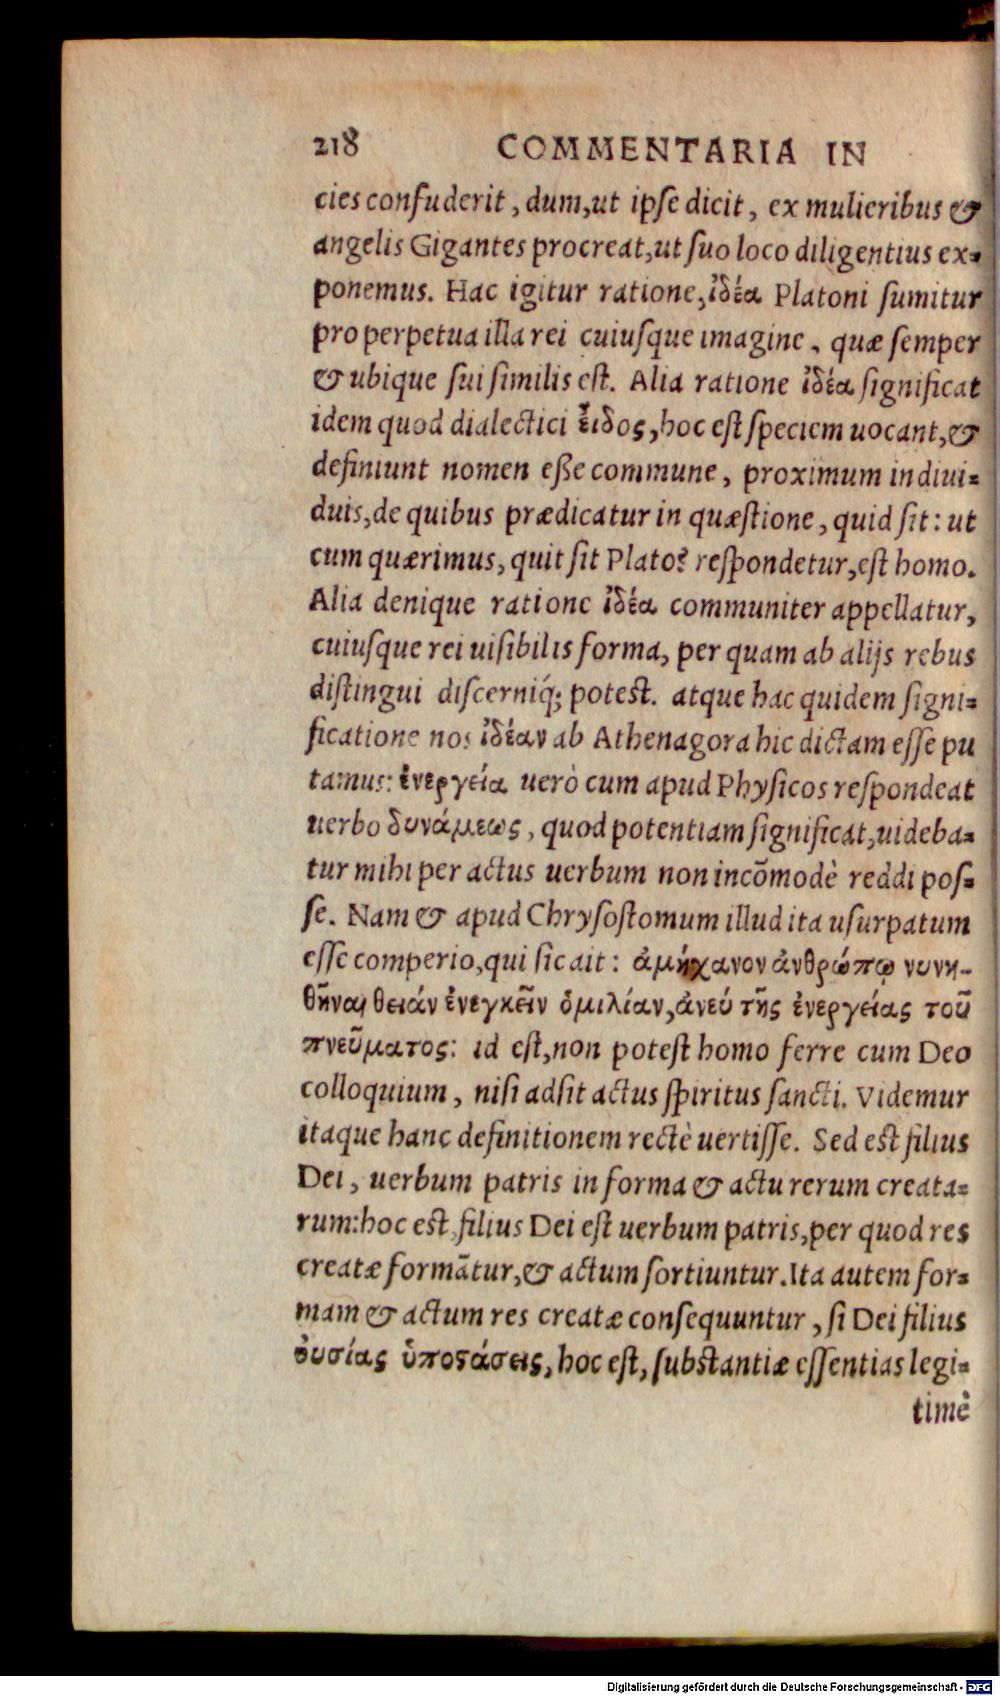 218 COMMENTARIA IN
cies confuderit, dum, ut ipse dicit, ex mulieribus &
angelis Gigantes procreat, ut suo loco diligentius ex=
ponemus. Hac igitur ratione, ἰδέα Platoni sumitur
pro perpetua illa rei cuiusque imagine, quæ semper
& ubique sui similis est. Alia ratione ἰδέα significat
idem quod dialectici εἶδος, hoc est speciem uocant, &
definiunt nomen esse commune, proximum indiui=
duis, de quibus prædicatur in quæstione, quid sit: ut
cum quærimus, quit sit Plato? respondetur, est homo.
Alia denique ratione ἰδέα communiter appellatur,
cuiusque rei uisibilis forma, per quam ab alijs rebus
distingui discerniq́; potest. atque hac quidem signi=
ficatione nos ἰδέαν ab Athenagora hic dictam esse pu
tamus: ἐνεργεία uerò cum apud Physicos respondeat
uerbo δυνάμεως, quod potentiam significat, uideba=
tur mihi per actus uerbum non incõmodè reddi pos=
se. Nam & apud Chrysostomum illud ita usurpatum
esse comperio, qui sic ait: ἀμήχανον ἀνθρώπῳ νυνη-
θῆναι θειάν ἐνεγκεῖν ὁμιλίαν, ἀνεύ τῆς ἐνεργείας τοῦ
πνεῦματος: id est, non potest homo ferre cum Deo
colloquium, nisi adsit actus spiritus sancti. Videmur
itaque hanc definitionem rectè uertisse. Sed est filius
Dei, uerbum patris in forma & actu rerum creata=
rum: hoc est, filius Dei est uerbum patris, per quod res
creatæ formãtur, & actum sortiuntur. Ita autem for=
mam & actum res creatæ consequuntur, si Dei filius
ὀυσίας ὑποστάσεις, hoc est, substantiæ essentias legi=
timè
Digitalisierung gefördert durch die Deutsche Forschungsgemeinschaft - DFG